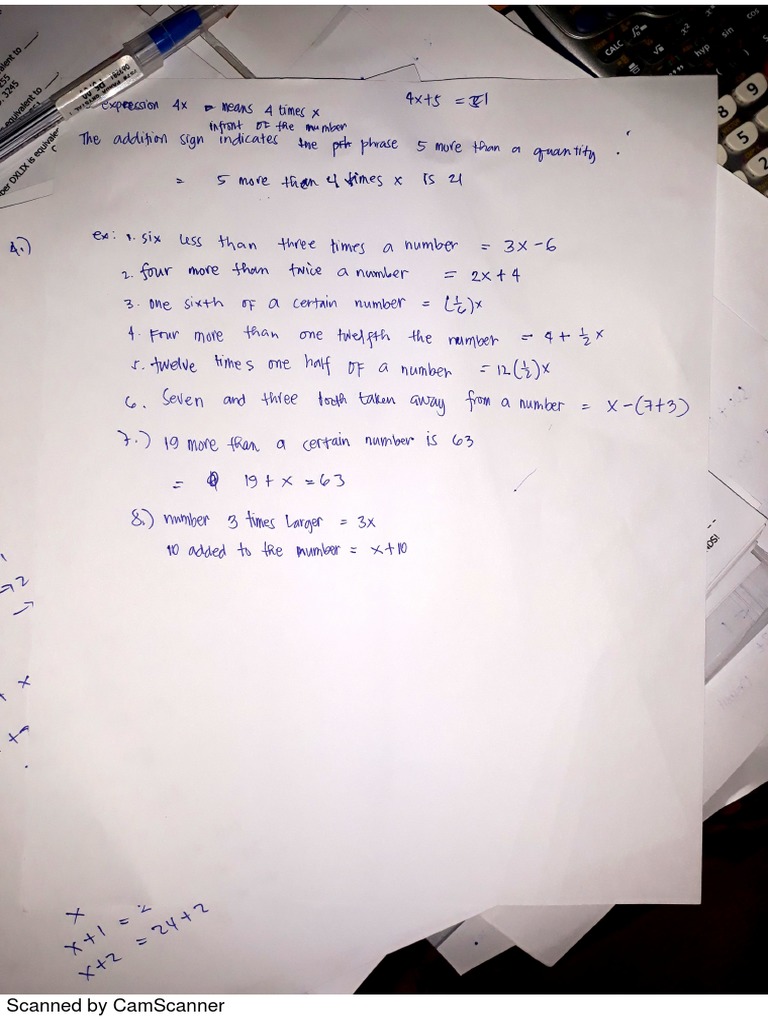 alent to ___
255
3. 3245
equivalent to ___
ber DXLIX is equivale
CALC
hyp
sin
cos
8
9
5
2
expression 4x means 4 times x
4x+5 = 21
infront of the number
The addition sign indicates the phrase 5 more than a quantity .
= 5 more than 4 times x is 21
4.)
ex: 1. six less than three times a number = 3x-6
2. four more than twice a number = 2x+4
3. one sixth of a certain number = (1/6)x
4. Four more than one twelfth the number = 4 + 1/2 x
5. twelve times one half of a number = 12(1/2)x
6. Seven and three taken away from a number = x-(7+3)
7.) 19 more than a certain number is 63
= 19 + x = 63
8.) number 3 times larger = 3x
10 added to the number = x+10
x
x+1 = 2
x+2 = 24+2
Scanned by CamScanner